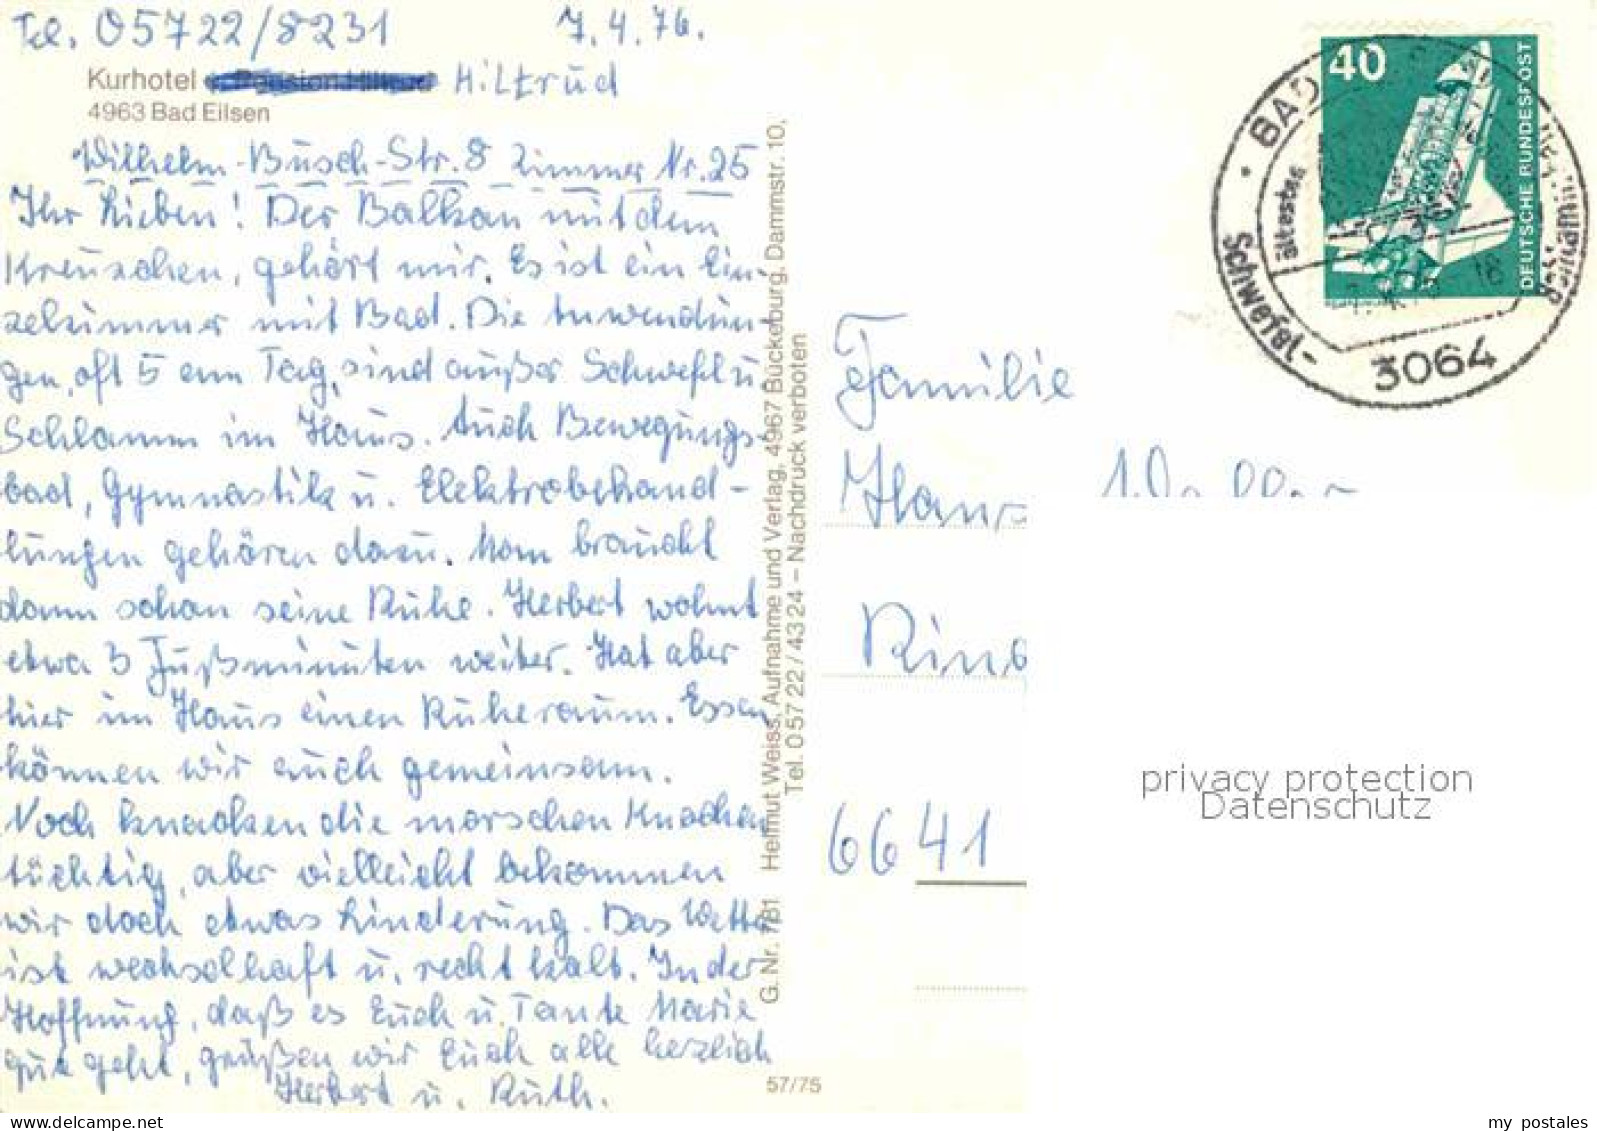 Tel. 05722/8231 7.4.76.
Kurhotel Hiltrud
4963 Bad Eilsen
Wilhelm-Busch-Str. 8 Zimmer Nr. 25
Ihr Lieben! Der Balkon mit dem
Kreuzchen, gehört mir. Es ist ein Ein-
zelzimmer mit Bad. Die Anwendun-
gen, oft 5 am Tag, sind außer Schwefel u.
Schlamm im Haus. Auch Bewegungs-
bad, Gymnastik u. Elektrobehand-
lungen gehören dazu. Man braucht
dann schon seine Ruhe. Herbert wohnt
etwa 3 Fußminuten weiter. Hat aber
hier im Haus einen Ruheraum. Essen
können wir auch gemeinsam.
Noch knacken die morschen Knochen
tüchtig, aber vielleicht bekommen
wir doch etwas Linderung. Das Wetter
ist wechselhaft u. recht kalt. In der
Hoffnung, daß es Euch u. Tante Marie
gut geht, grüßen wir Euch alle herzlich
Herbert u. Ruth.
G. Nr. 781 Helmut Weiss, Aufnahme und Verlag, 4967 Bückeburg, Dammstr. 10,
Tel. 0 57 22 / 43 24 – Nachdruck verboten
57/75
40
DEUTSCHE BUNDESPOST
BAD
ältestes
Schwefel-
3064
Familie
Hans
6641
privacy protection
Datenschutz
my postales